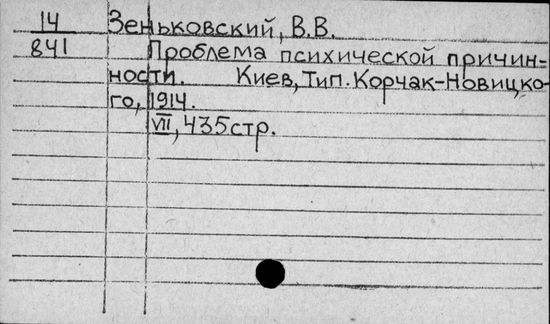 14 Зеньковский, В.В.
841 Проблема психической причин=
ности. Киев, Тип. Корчак-Новицко-
го, 1914.
VII, 435стр.